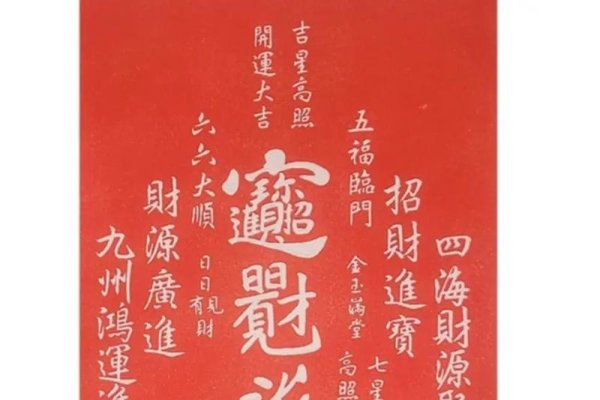 吉星高照
開運大吉
五福臨門
六六大順
招財進寶
日日有見財
金玉滿堂
招財進寶
財源廣進
四海財源
九州鴻運進
七星
高照